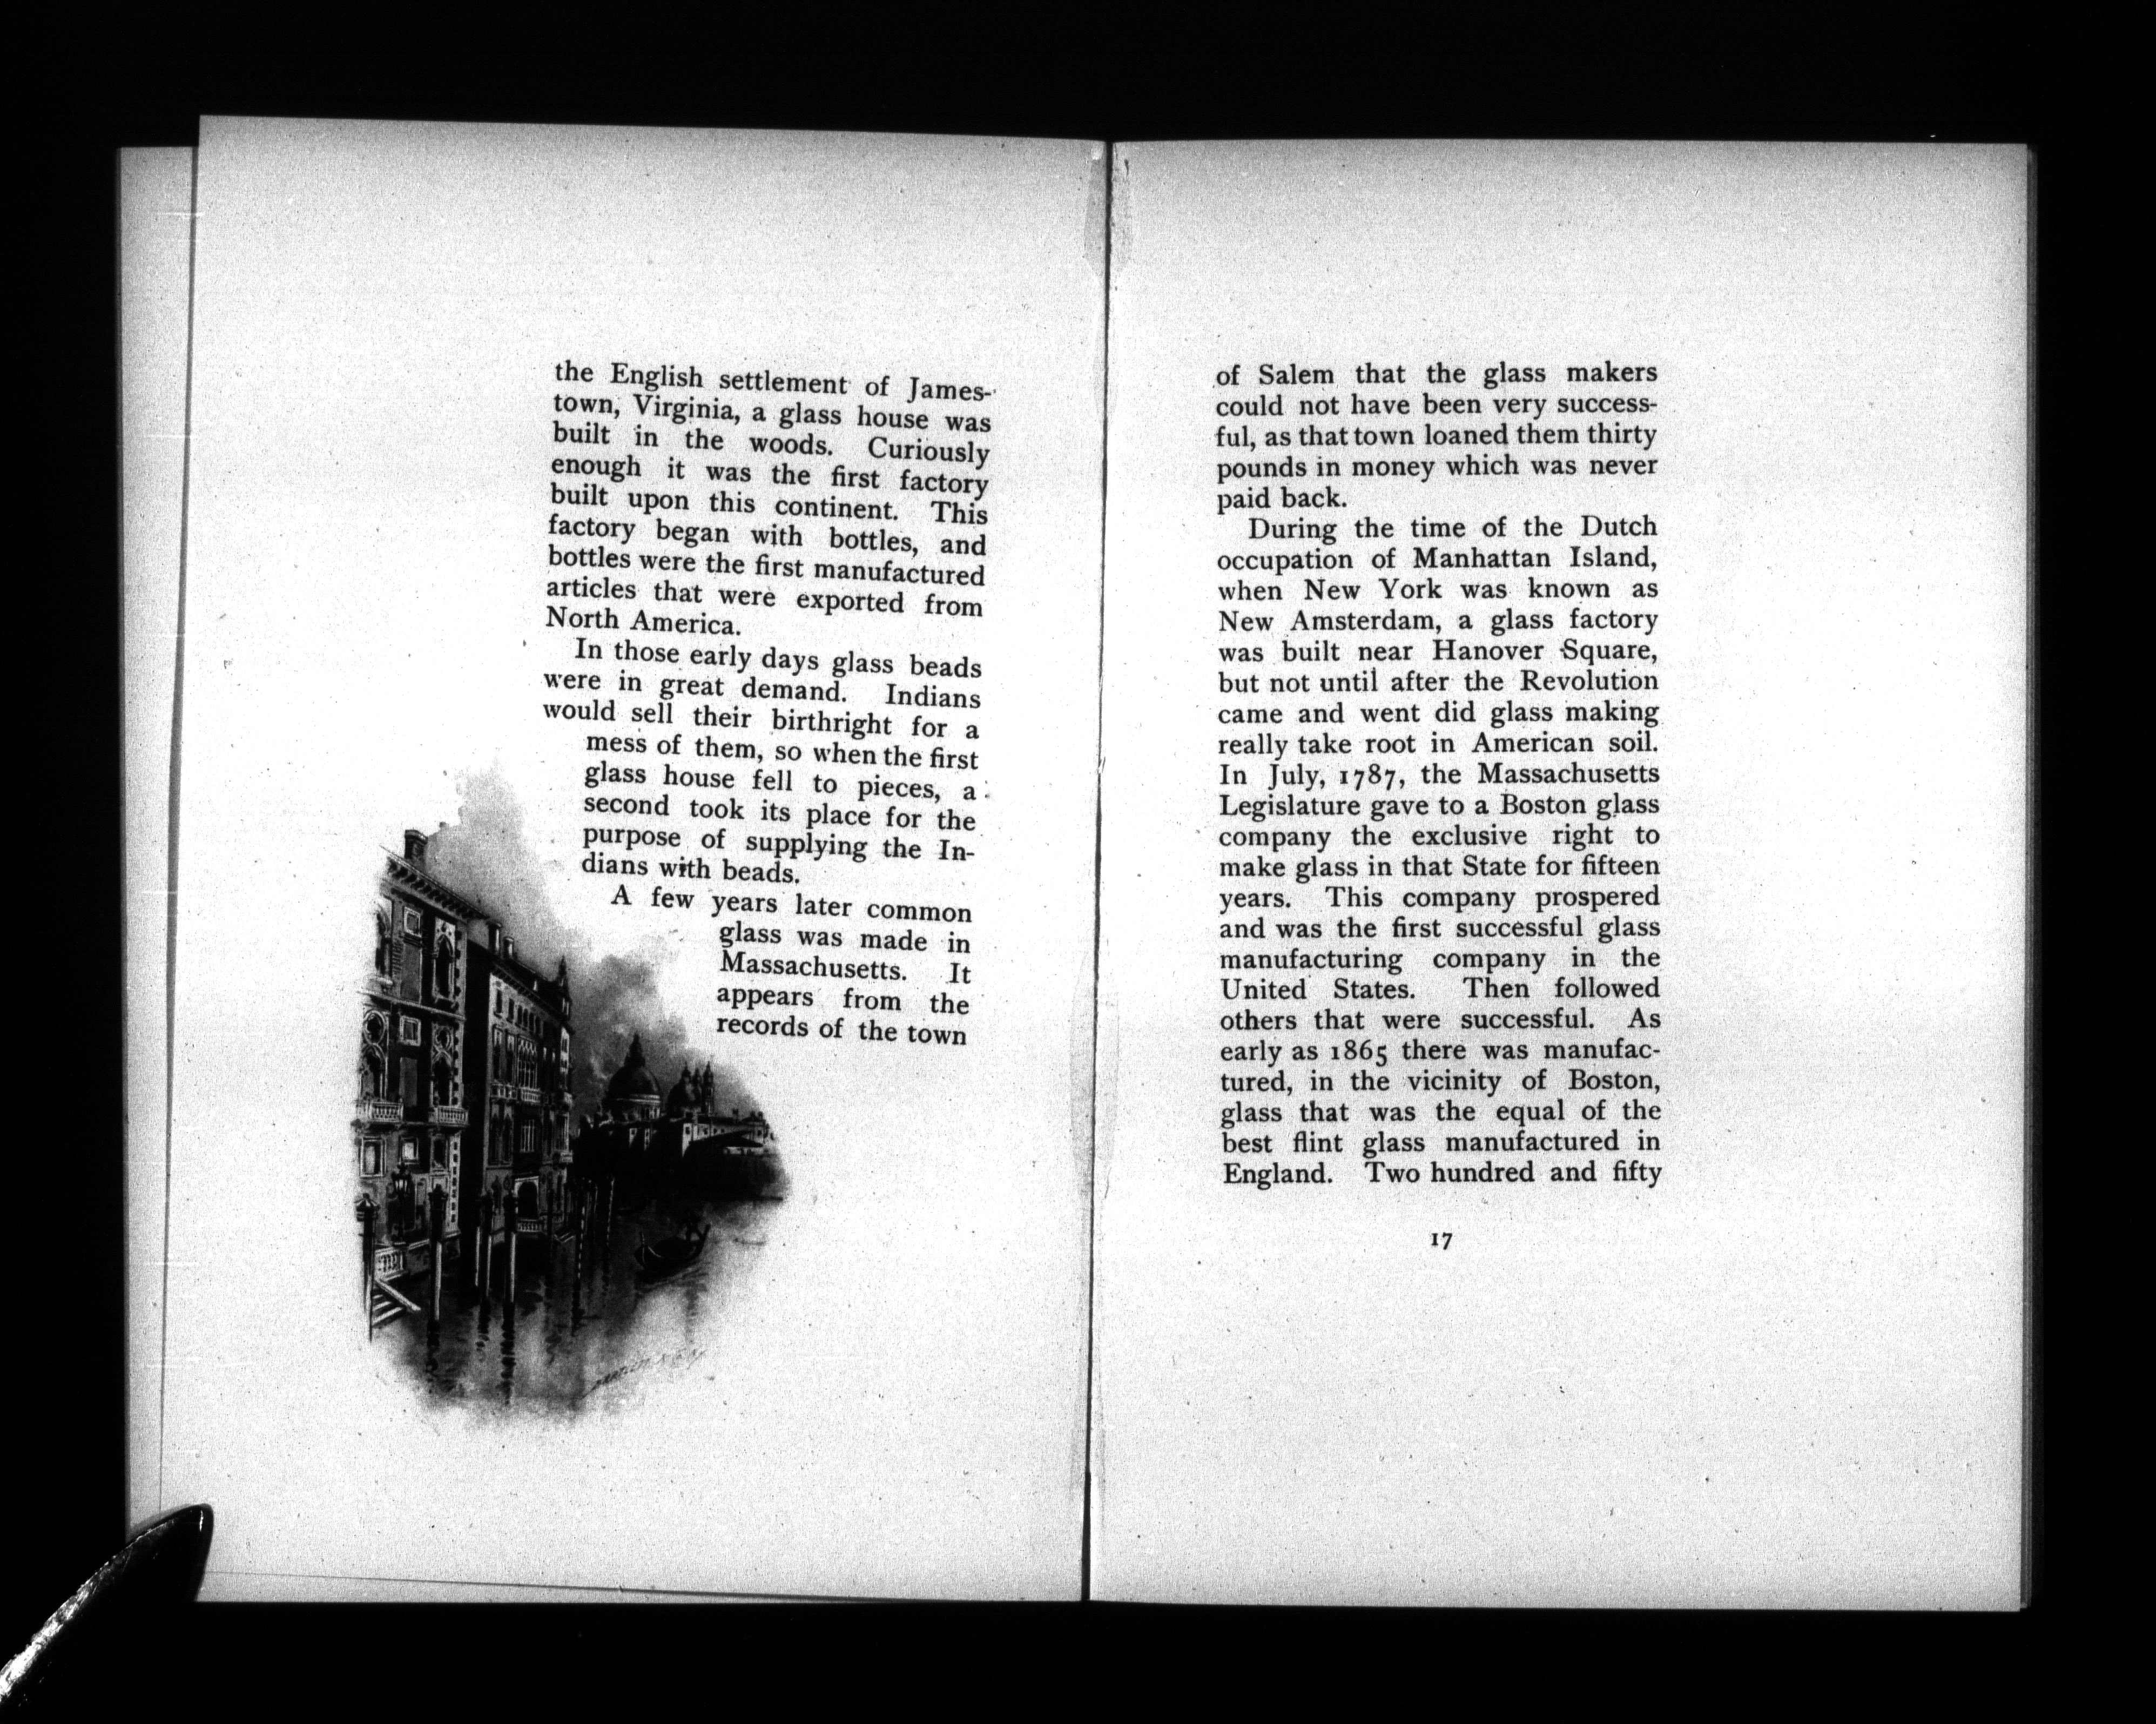 the English settlement of James-
town, Virginia, a glass house was
built in the woods. Curiously
enough it was the first factory
built upon this continent. This
factory began with bottles, and
bottles were the first manufactured
articles that were exported from
North America.
In those early days glass beads
were in great demand. Indians
would sell their birthright for a
mess of them, so when the first
glass house fell to pieces, a
second took its place for the
purpose of supplying the In-
dians with beads.
A few years later common
glass was made in
Massachusetts. It
appears from the
records of the town
of Salem that the glass makers
could not have been very success-
ful, as that town loaned them thirty
pounds in money which was never
paid back.
During the time of the Dutch
occupation of Manhattan Island,
when New York was known as
New Amsterdam, a glass factory
was built near Hanover Square,
but not until after the Revolution
came and went did glass making
really take root in American soil.
In July, 1787, the Massachusetts
Legislature gave to a Boston glass
company the exclusive right to
make glass in that State for fifteen
years. This company prospered
and was the first successful glass
manufacturing company in the
United States. Then followed
others that were successful. As
early as 1865 there was manufac-
tured, in the vicinity of Boston,
glass that was the equal of the
best flint glass manufactured in
England. Two hundred and fifty
17